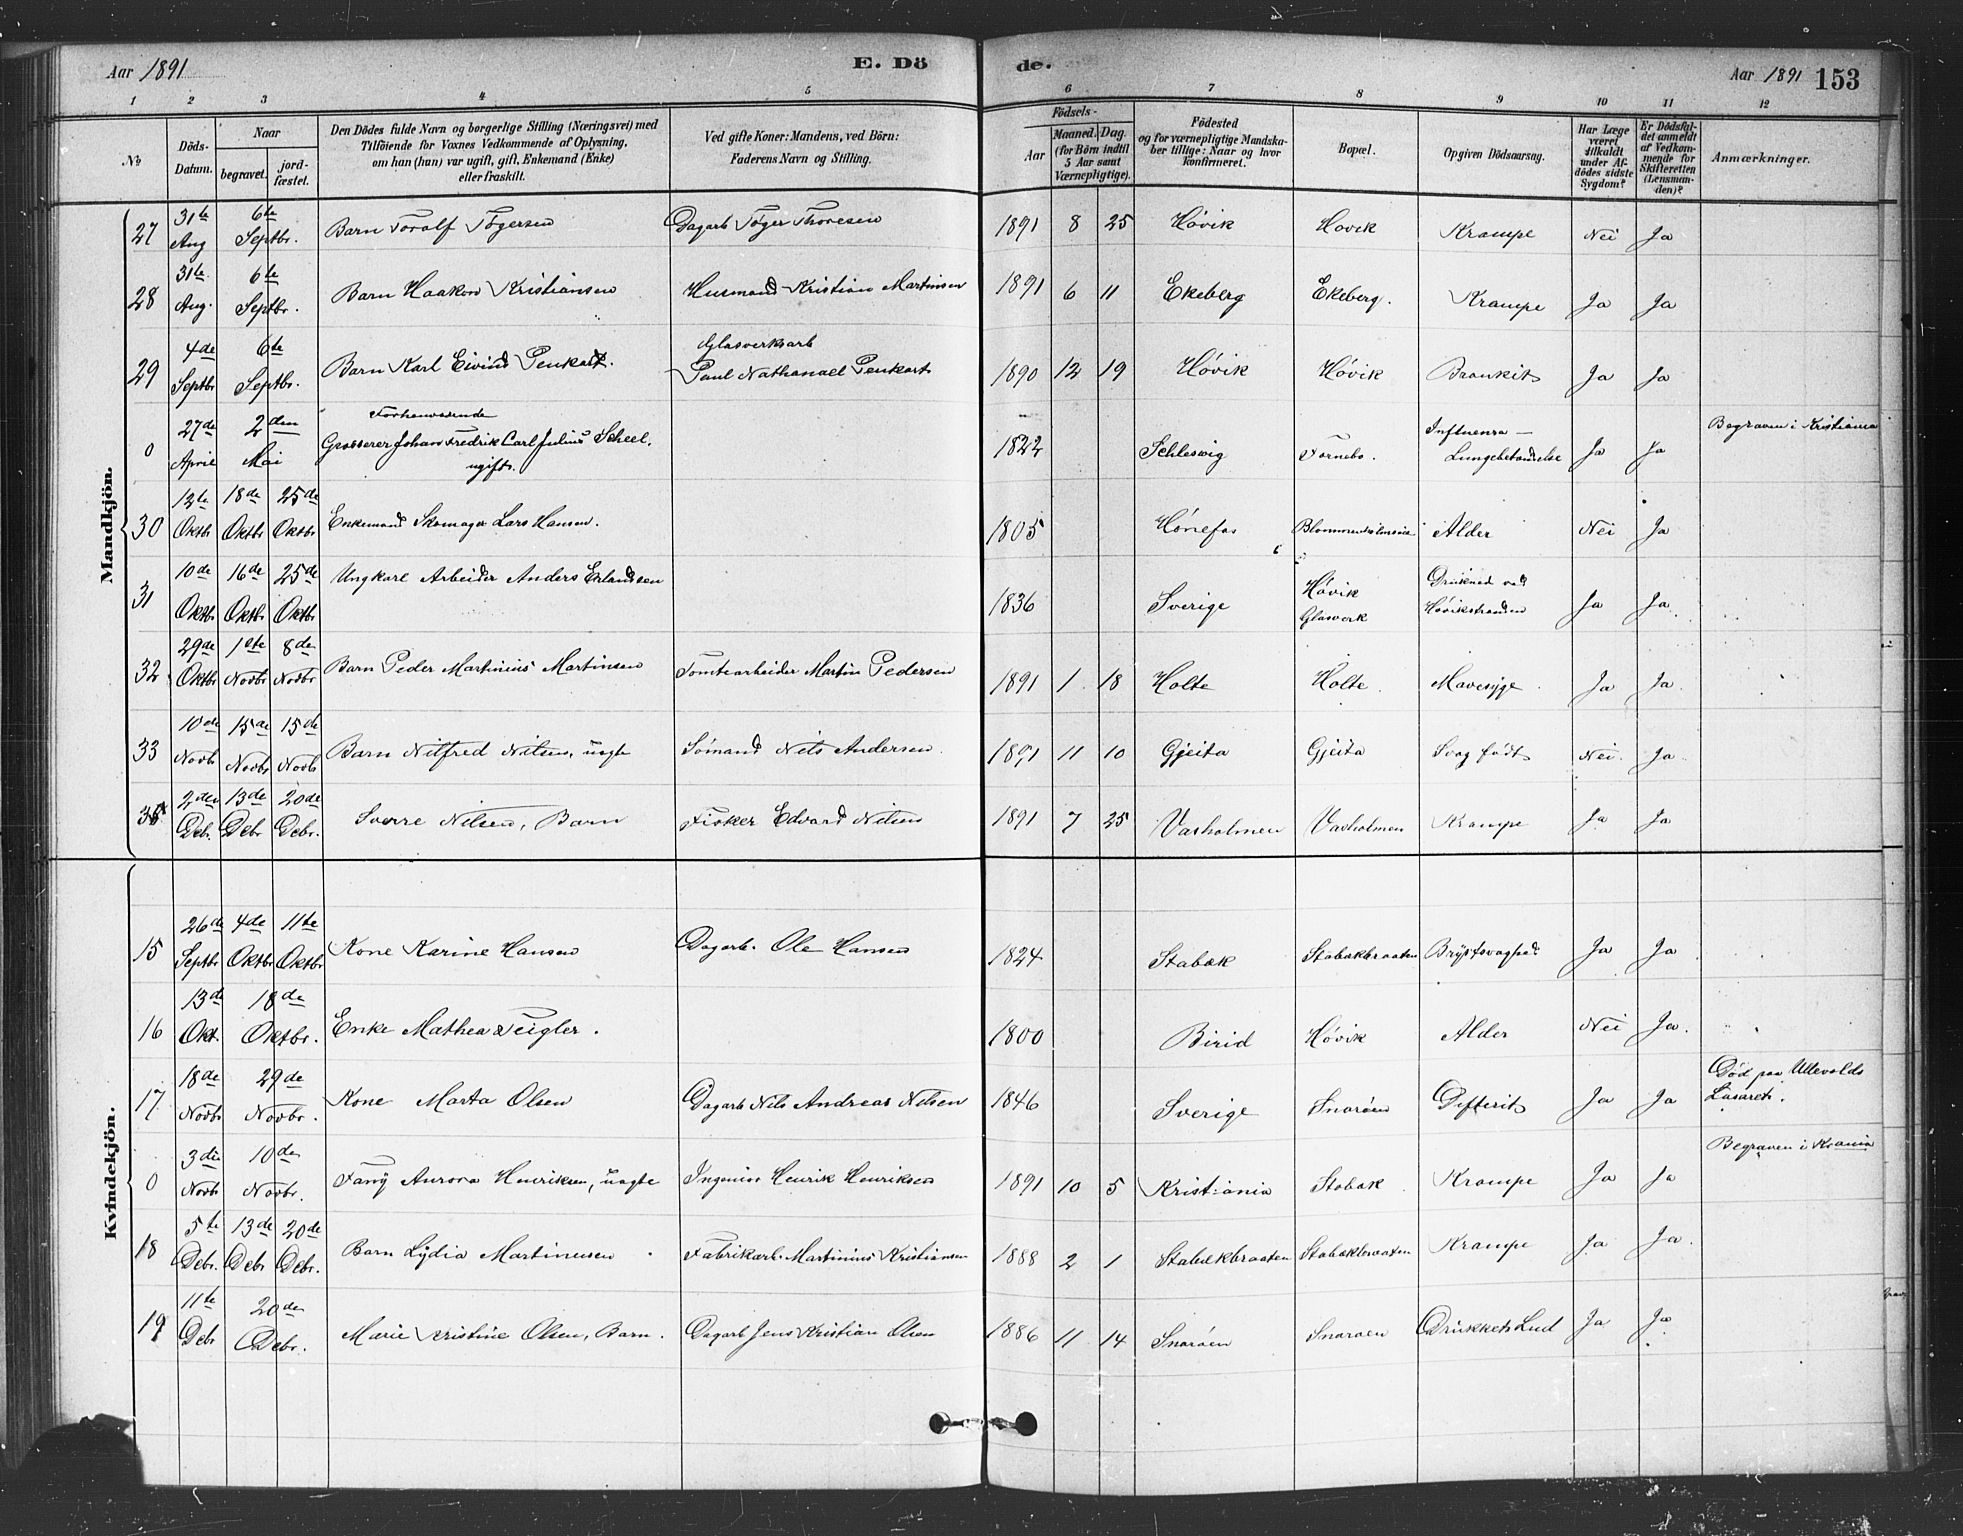 Aar 1891
E. Dö
de.
Aar 1891 153
1 2 3 4 5 6 7 8 9 10 11 12
No
Döds-Datum.
Naar
begravet.
jord-fæstet.
Den Dödes fulde Navn og borgerlige Stilling (Næringsvei) med
Tilföiende for Voxnes Vedkommende af Oplysning,
om han (hun) var ugift, gift, Enkemand (Enke)
eller fraskilt.
Ved gifte Koner: Mandens, ved Börn:
Faderens Navn og Stilling.
Födsels-
Aar
Maaned. Dag.
(for Börn indtil
5 Aar samt
Værnepligtige).
Födested
og for værnepligtige Mandska-
ber tillige: Naar og hvor
konfirmeret.
Bopæl.
Opgiven Dödsaarsag.
Har Læge
været
tilkaldt
under Af-
dödes sidste
Sygdom?
Er Dödsfal-
det anmeldt
af Vedkom-
mende for
Skifteretten
(Lensman-
den)?
Anmærkninger.
Mandkjön.
27 31te Aug 6te Septbr. Barn Toralf Tögersen Dagarb Töger Thoresen 1891 8 25 Høvik Hovik Krampe Nei Ja
28 31te Aug. 6te Septbr. Barn Haakon Kristiansen Husmand Kristian Martinsen 1891 6 11 Ekeberg Ekeberg. Krampe Ja Ja
29 4de Septbr 6te Septbr. Barn Karl Eivind Penkert. Glasverksarb Paul Nathanael Penkert 1890 12 19 Høvik Høvik Bronkit Ja Ja
0 27de April 2den Mai Forhenværende Grosserer Johan Fredrik Carl Julius Scheel. ugift. 1822 Schleswig Fornebo. Influensa - Lungebetændelse Ja Ja Begraven i Kristiania
30 12te Oktbr 18de Oktbr 25de Oktbr Enkemand Skomager Lars Hansen. 1805 Hønefos Alder Nei Ja
31 10de Oktbr 16de Oktbr 25de Oktbr Ungkarl Arbeider Anders Erlandsen 1836 Sverige Høvik Glasverk Druknet ved Høvikstranden Ja Ja
32 29de Oktbr 1ste Novbr 8de Novbr Barn Peder Martinius Martinsen Tomtearbeider Martin Pedersen 1891 1 18 Holte Holte Mavesyge Ja Ja
33 10de Novbr 15de Novbr 15de Novbr Barn Nilfred Nilsen, uægte Sömand Nils Andersen 1891 11 10 Gjeita Gjeita Svag født Nei. Ja
2den Debr. 13de Debr 20de Debr. Sverre Nilsen, Barn Fisker Edvard Nilsen 1891 7 25 Vasholmen Vasholmen Krampe Ja Ja
Kvindekjön.
15 26de Septbr 4de Oktbr 11te Oktbr Kone Karine Hansen Dagarb. Ole Hansen 1824 Stabæk Stabækbraaten Brystsvaghed Ja Ja
16 13de Okt. 18de Oktbr. Enke Mathea Zeigler. 1800 Birid Høvik Alder Nei Ja.
17 18de Novbr 29de Novbr. Kone Marta Olsen Dagarb Nils Andreas Nilsen 1846 Sverige Snaröen Difterit Ja Ja Död paa Ullevolds Lasaret.
0 3die Novbr 10de Novbr. Fany Aurora Henriksen, uægte Ingeniør Henrik Henriksen 1891 10 5 Kristiania Stabæk Krampe Ja Ja Begraven i Krania
18 5te Debr. 13de Debr 20de Debr. Barn Lydia Martinusen Fabrikarb. Martinius Kristiansen 1888 2 1 Stabækbraaten Stabækbraaten Krampe Ja Ja.
19 11te Debr 20de Debr. Marie Kristine Olsen, Barn. Dagarb Jens Kristian Olsen 1886 11 14 Snaröen Snaroen Drukket Lud Ja Ja